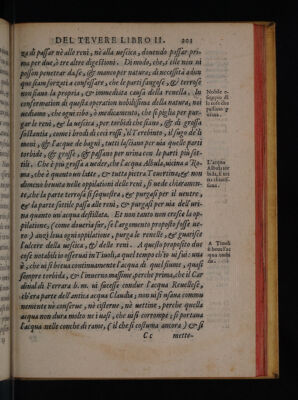 DEL TEVERE LIBRO II. 201
za di passar nè alle reni, nè alla uessica, douendo passar pri-
ma per due, ò tre altre digestioni. Di modo, che, s'elle non ui
posson penetrar da se, & manco per natura; di necessità adun
que siam forzati a confessare, che le parti sangose, & terrose
non siano la propria, & immediata causa della renella. In
confermation di questa operation nobilissima della natura, noi
uediamo, che ogni cibo, ò medicamento, che si piglia per pur
gar le reni, & la uessica, per torbidi che siano, & di grossa
sostantia, come i brodi di ceci rossi, il Terebinto, il sugo de'li
meni, & l'acque de bagni, tutti lasciano per uia quelle parti
torbide, & grosse, & passano per urina con le parti piu sot-
tili. Che è piu grossa a ueder, che l'acqua Albula, uicina a Ro
ma, che è quanto un latte, & tutta pietra Teuertina; & non
dimeno beuuta nelle oppilationi delle reni, si uede chiaramen-
te, che la parte terrosa si sgrossa, & purgasi per il uentre,
& la parte sottile passa alle reni, & purgasi per uia dell'uri
na quanto un'acqua destillata. Et non tanto non creasce la op-
pilatione, (come douerria far, se l'argomento proposto fosse ue-
ro) anzi leua ogni oppilatione, purga le renelle, & guarisce
l'ulcere della uessica, & delle reni. A questo proposito due
cose notabili osseruai in Tiuoli, a quel tempo ch'io ui fui: una
è, che ui si beeua continuamente l'acqua di quel fiume, quasi
sempre torbida, & l'inuerno massime, perche prima, che il Car
dinal di Ferrara b. m. ui facesse condur l'acqua Reuellese,
ch'era parte dell'antica acqua Claudia; non ui si usaua commu
nemente nè conserue, nè cisterne, nè uettine, perche quella
acqua non dura molto ne i uasi, che ui si corrompe; si portaua
l'acqua nelle conche di rame, (il che si costuma ancora) & si
Cc mette-
Nobile o-
passano p
urina.
L'acqua
A Tiuoli